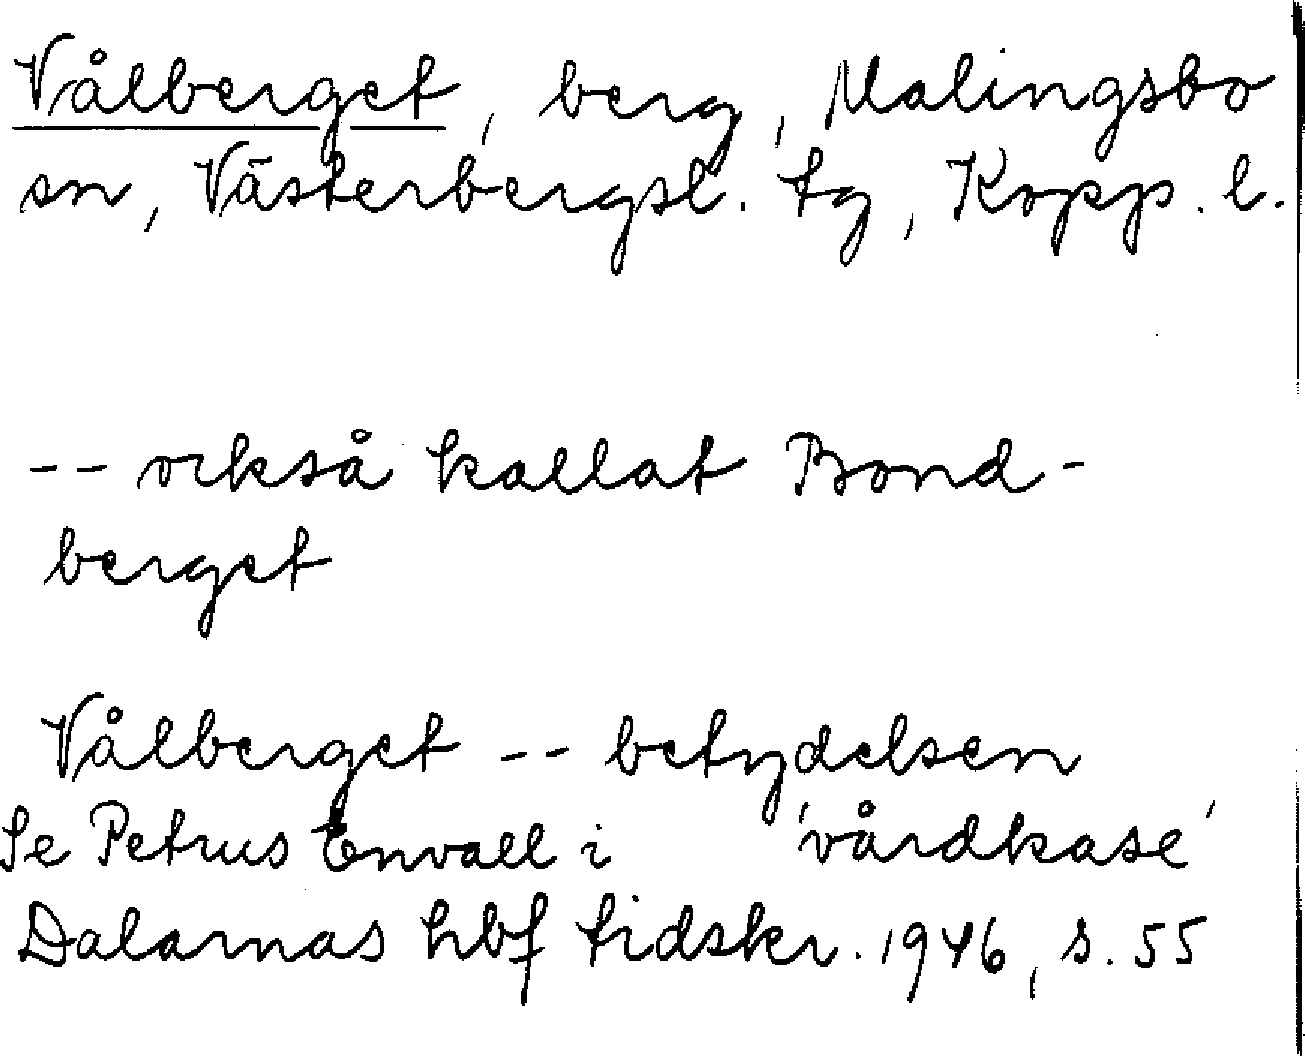 Vålberget, berg, Malingsbo
sn, Västerbergsl. tg, Kopp. l.
-- också kallat Bond-
berget
Vålberget -- betydelsen
'vårdkase'
Se Petrus Envall i
Dalarnas hbf tidskr. 1946, s. 55